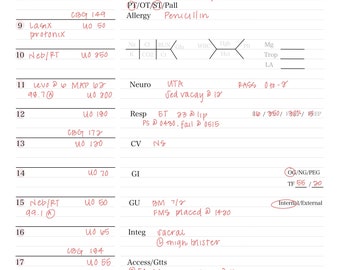 CBG 149
PT/OT/ST/Pall
9 Lasix UO 50
protonix
Allergy Penicillin
10 Neb/RT UO 250
Mg
Trop
LA
11 UO 200
99.7 (A)
Neuro UTA RASS
Sed vacay @ 12
12 UO 130
Resp ET 23 @ lip
PS @ 0430 - fail @ 0515
CBG 172
13 UO 120
CV NS
14 UO 70
GI
OG/NG/PEG
TF 55 / 20
15 Neb/RT UO 50
99.1 (A)
GU BM 7/2
FMS placed @ 1420
Internal/External
16 UO 65
Integ sacral
@ thigh blister
CBG 194
17 UO 55
Access/Gtts